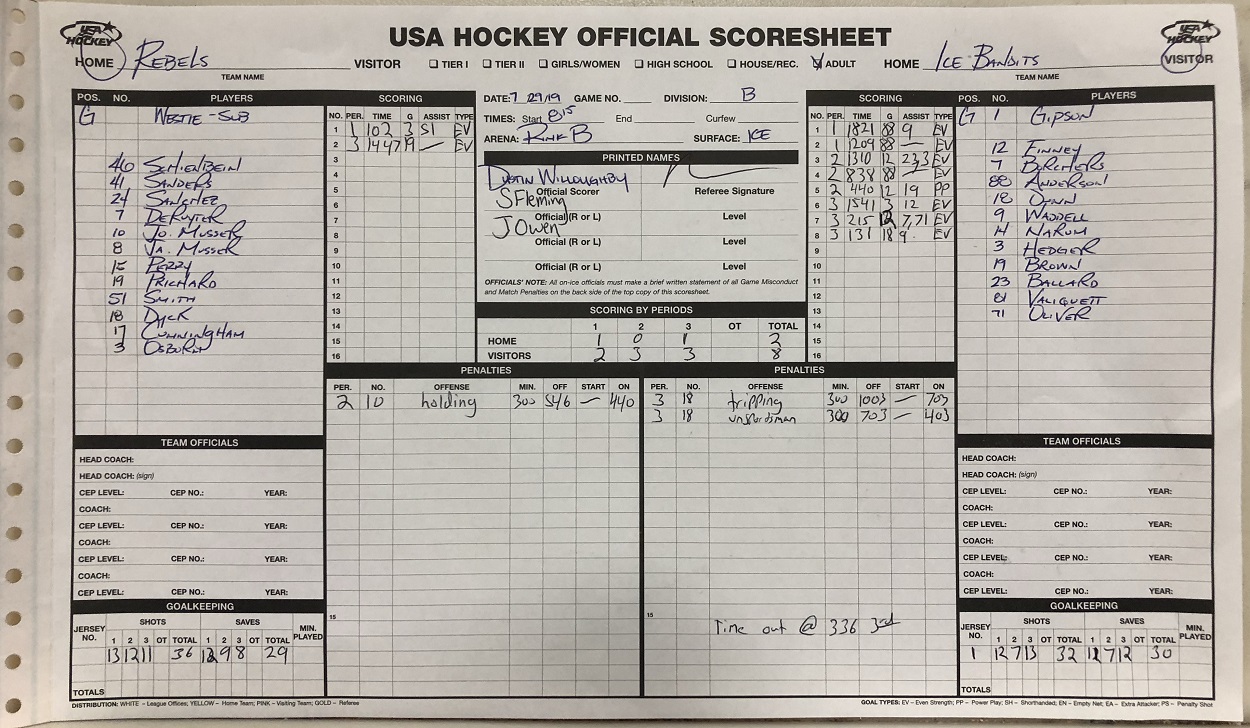 USA HOCKEY OFFICIAL SCORESHEET
USA HOCKEY
HOME REBELS VISITOR
TEAM NAME
☐ TIER I ☐ TIER II ☐ GIRLS/WOMEN ☐ HIGH SCHOOL ☐ HOUSE/REC. ☑ ADULT
HOME ICE BANDITS VISITOR
TEAM NAME
USA HOCKEY
POS. NO. PLAYERS
G WESTIE - SUB
46 SCHIENBEIN
41 SANDERS
24 SANCHEZ
7 DERUYTER
10 JO. MUSSER
8 JA. MUSSER
15 PERRY
19 PRICHARD
51 SMITH
18 DYCK
17 CUNNINGHAM
3 OSBURN
SCORING
NO. PER. TIME G ASSIST TYPE
1 1 102 3 51 EV
2 3 1447 19 — EV
3
4
5
6
7
8
9
10
11
12
13
14
15
16
DATE: 7 29/19 GAME NO. DIVISION: B
TIMES: Start 8:15 End Curfew
ARENA: RINK B SURFACE: ICE
PRINTED NAMES
DUSTIN WILLOUGHBY
Official Scorer Referee Signature
S Fleming
Official (R or L) Level
J Owen
Official (R or L) Level
Official (R or L) Level
OFFICIALS' NOTE: All on-ice officials must make a brief written statement of all Game Misconduct
and Match Penalties on the back side of the top copy of this scoresheet.
SCORING BY PERIODS
1 2 3 OT TOTAL
HOME 1 0 1 2
VISITORS 2 3 3 8
SCORING
NO. PER. TIME G ASSIST TYPE
1 1 1821 88 9 EV
2 1 1209 88 — EV
3 2 1310 12 23,3 EV
4 2 838 88 — EV
5 2 440 12 19 PP
6 3 1541 3 12 EV
7 3 215 12 7,71 EV
8 3 131 18 9 EV
9
10
11
12
13
14
15
16
POS. NO. PLAYERS
G 1 GIPSON
12 FINNEY
7 BORCHERS
88 ANDERSON
18
9 WADDELL
14 NARUM
3 HEDGER
19 BROWN
23 BALLARD
81 VALIQUETT
71 OLIVER
PENALTIES
PER. NO. OFFENSE MIN. OFF START ON
2 10 holding 300 546 — 440
15
PENALTIES
PER. NO. OFFENSE MIN. OFF START ON
3 18 tripping 300 1003 — 703
3 18 unsportsman 300 703 — 403
15
Time out @ 336 3rd
TEAM OFFICIALS
HEAD COACH:
HEAD COACH: (sign)
CEP LEVEL: CEP NO.: YEAR:
COACH:
CEP LEVEL: CEP NO.: YEAR:
COACH:
CEP LEVEL: CEP NO.: YEAR:
COACH:
CEP LEVEL: CEP NO.: YEAR:
GOALKEEPING
JERSEY NO. SHOTS SAVES MIN. PLAYED
1 2 3 OT TOTAL 1 2 3 OT TOTAL
13 12 11 36 12 9 8 29
TOTALS
TEAM OFFICIALS
HEAD COACH:
HEAD COACH: (sign)
CEP LEVEL: CEP NO.: YEAR:
COACH:
CEP LEVEL: CEP NO.: YEAR:
COACH:
CEP LEVEL: CEP NO.: YEAR:
COACH:
CEP LEVEL: CEP NO.: YEAR:
GOALKEEPING
JERSEY NO. SHOTS SAVES MIN. PLAYED
1 2 3 OT TOTAL 1 2 3 OT TOTAL
1 12 7 13 32 11 7 12 30
TOTALS
DISTRIBUTION: WHITE – League Offices; YELLOW – Home Team; PINK – Visiting Team; GOLD – Referee
GOAL TYPES: EV – Even Strength; PP – Power Play; SH – Shorthanded; EN – Empty Net; EA – Extra Attacker; PS – Penalty Shot